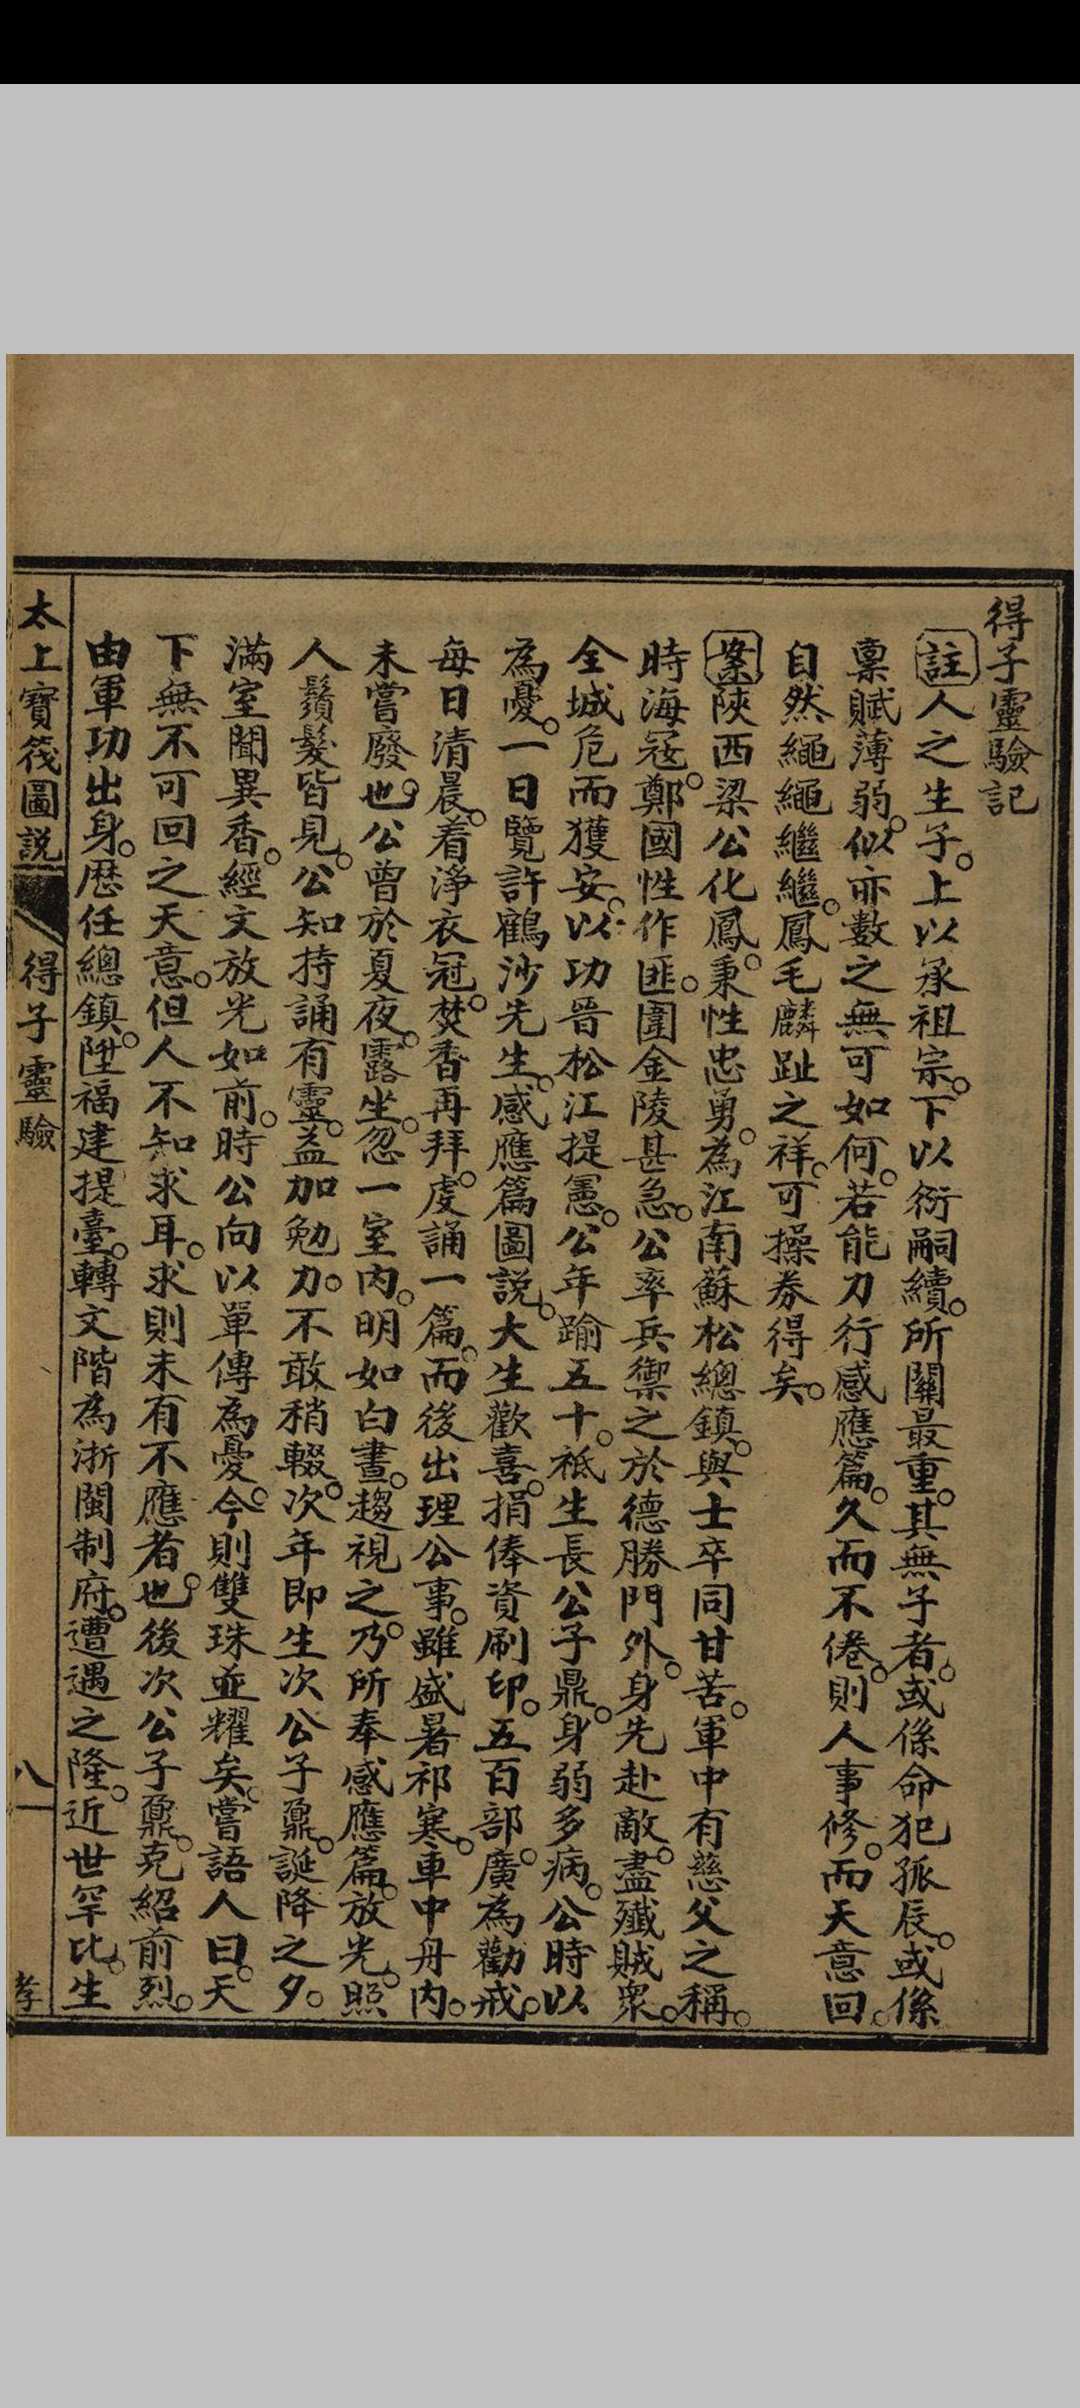 得子靈驗記
註人之生子。上以承祖宗。下以衍嗣續。所關最重。其無子者。或係命犯孤辰。或係
稟賦薄弱。似亦數之無可如何。若能力行感應篇。久而不倦。則人事修。而天意回。
自然繩繩繼繼。鳳毛麟趾之祥。可操券得矣。
案陝西梁公化鳳。秉性忠勇。為江南蘇松總鎮。與士卒同甘苦。軍中有慈父之稱。
時海冦。鄭國性作匪。圍金陵甚急。公率兵禦之於德勝門外。身先赴敵。盡殲賊衆。
全城危而獲安。以功晉松江提憲。公年踰五十。祗生長公子鼎。身弱多病。公時以
為憂。一日覽許鶴沙先生。感應篇圖説。大生歡喜。捐俸資刷印。五百部。廣為勸戒。
每日清晨。着淨衣冠。焚香再拜。虔誦一篇。而後出理公事。雖盛暑祁寒。車中舟内。
未嘗廢也。公曾於夏夜。露坐。忽一室内。明如白晝。趨視之。乃所奉感應篇。放光。照
人鬚髮皆見。公知持誦有靈。益加勉力。不敢稍輟。次年即生次公子鼐。誕降之夕。
滿室聞異香。經文放光如前。時公向以單傳為憂。今則雙珠並耀矣。嘗語人曰。天
下無不可回之天意。但人不知求耳。求則未有不應者也。後次公子鼐。克紹前烈。
由軍功出身。歷任總鎮。陞福建提臺。轉文階為浙閩制府。遭遇之隆。近世罕比。生
太上寶筏圖説 得子靈驗 八一 孝